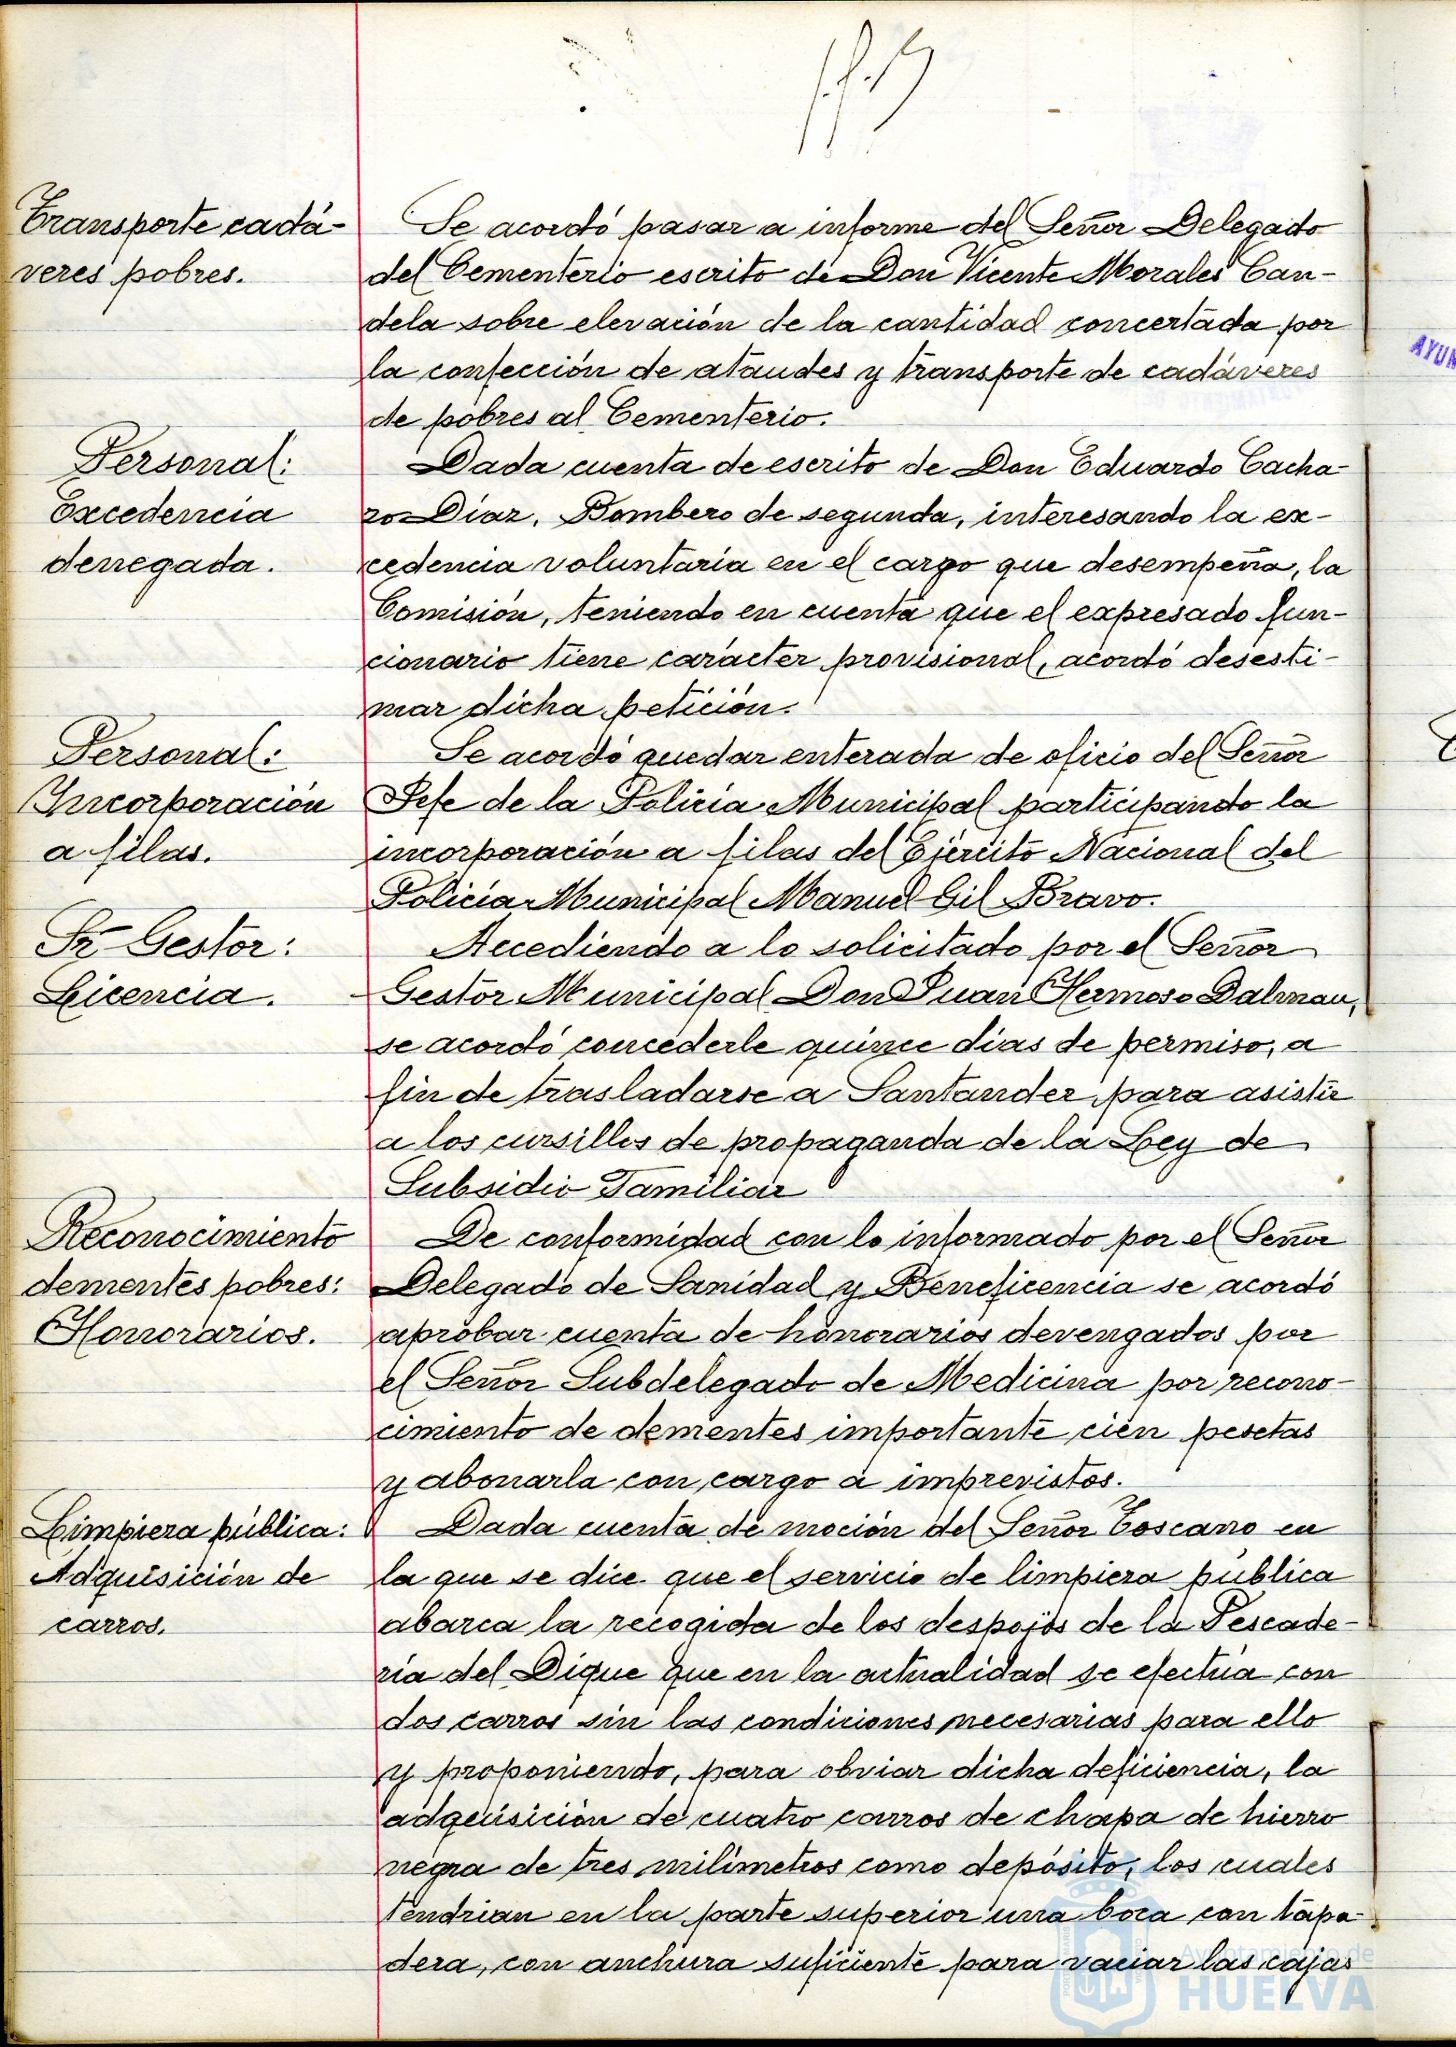 Transporte cadá-
veres pobres.
Se acordó pasar a informe del Señor Delegado
del Cementerio escrito de Don Vicente Morales Can-
dela sobre elevación de la cantidad concertada por
la confección de ataudes y transporte de cadáveres
de pobres al Cementerio.
Personal:
Excedencia
denegada.
Dada cuenta de escrito de Don Eduardo Cacha-
ro Díaz, Bombero de segunda, interesando la ex-
cedencia voluntaria en el cargo que desempeña, la
Comisión, teniendo en cuenta que el expresado fun-
cionario tiene carácter provisional, acordó desesti-
mar dicha petición.
Personal:
Incorporación
a filas.
Se acordó quedar enterada de oficio del Señor
Jefe de la Policía Municipal participando la
incorporación a filas del Ejército Nacional del
Policía Municipal Manuel Gil Bravo.
Sr Gestor:
Licencia.
Accediendo a lo solicitado por el Señor
Gestor Municipal Don Juan Hermoso Dalmau,
se acordó concederle quince dias de permiso, a
fin de trasladarse a Santander para asistir
a los cursillos de propaganda de la Ley de
Subsidio Familiar
Reconocimiento
dementes pobres:
Honorarios.
De conformidad con lo informado por el Señor
Delegado de Sanidad y Beneficencia se acordó
aprobar cuenta de honorarios devengados por
el Señor Subdelegado de Medicina por recono-
cimiento de dementes importante cien pesetas
y abonarla con cargo a imprevistos.
Limpieza pública:
Adquisición de
carros.
Dada cuenta de moción del Señor Toscano en
la que se dice que el servicio de limpieza pública
abarca la recogida de los despojos de la Pescade-
ría del Dique que en la actualidad se efectúa con
dos carros sin las condiciones necesarias para ello
y proponiendo, para obviar dicha deficiencia, la
adquisición de cuatro carros de chapa de hierro
negra de tres milímetros como depósito, los cuales
tendrian en la parte superior una boca con tapa-
dera, con anchura suficiente para vaciar las cajas
Ayuntamiento de
HUELVA
AYUN